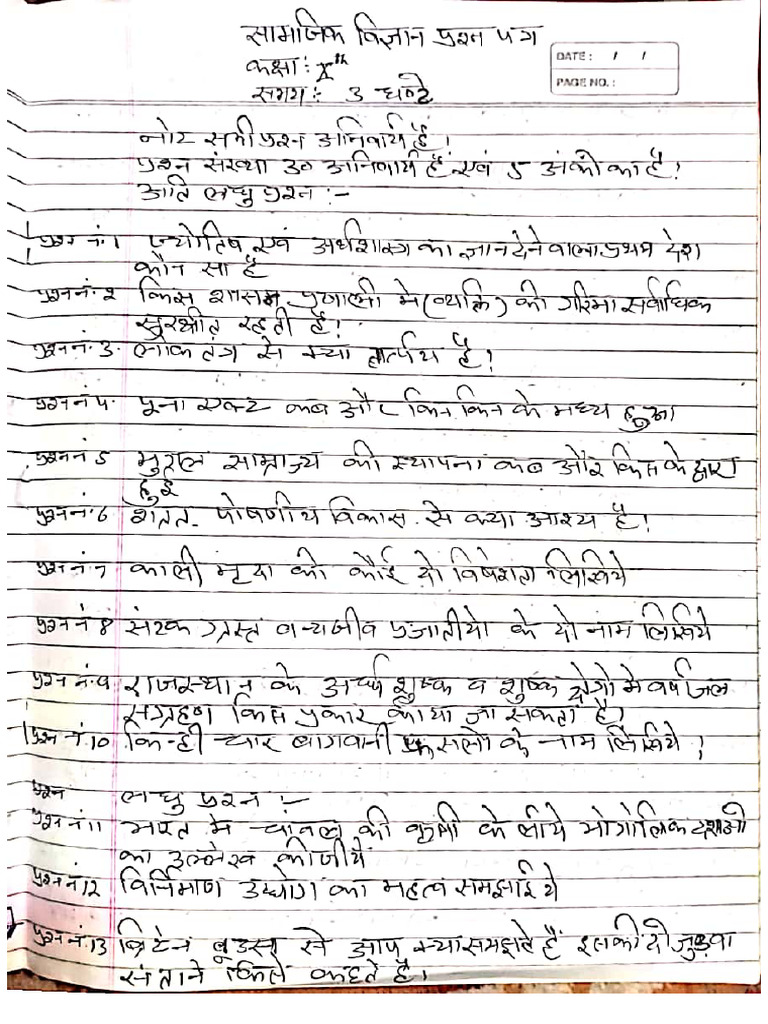 सामाजिक विज्ञान प्रश्न पत्र
कक्षा: Xth
DATE: / /
समय: 3 घण्टे
PAGE NO.:
नोट सभी प्रश्न अनिवार्य हैं।
प्रश्न संख्या 30 अनिवार्य हैं एवं 5 अंको का है!
अति लघु प्रश्न :-
प्रश्न नं.1 ज्योतिष एवं अर्थशास्त्र का ज्ञान देने वाला प्रथम देश
कौन सा है
प्रश्न नं. 2 किस शासन प्रणाली मे (व्यक्ति) की गरिमा सर्वाधिक
सुरक्षीत रहती है!
प्रश्न नं. 3. लोकतंत्र से क्या तात्पर्य है!
प्रश्न नं 4. पूना एक्ट कब और किन किन के मध्य हुआ
प्रश्न नं 5 मुगल साम्राज्य की स्थापना कब और किस के द्वारा
हुई
प्रश्न नं. 6 शतत पोषणीय विकास से क्या आश्य है!
प्रश्न नं. 7 काली मृदा की कोई दो विषेशता लिखिये
प्रश्न नं 8 संटक ग्रस्त वन्यजीव प्रजातीयो के दो नाम लिखिये
प्रश्न नं. 9 राजस्थान के अर्ध्द शुष्क व शुष्क क्षेत्रो मे वर्षा जल
सग्रहण किस प्रकार कीया जा सकता है।
प्रश्न नं. 10 किन्ही चार बागवानी फसलो के नाम लिखिये!
प्रश्न लघु प्रश्न :-
प्रश्न नं 11 भारत मे चावल की कृषी के लीये भोगोलिक दशाओ
का उल्लेख कीजीये
प्रश्न नं 12 विर्निमाण उध्योग का महत्व समझाईये
प्रश्न नं. 13 ब्रिटेन वुडस से आप क्या समझते हैं इसकी दो जुडवा
संताने किसे कहते है।